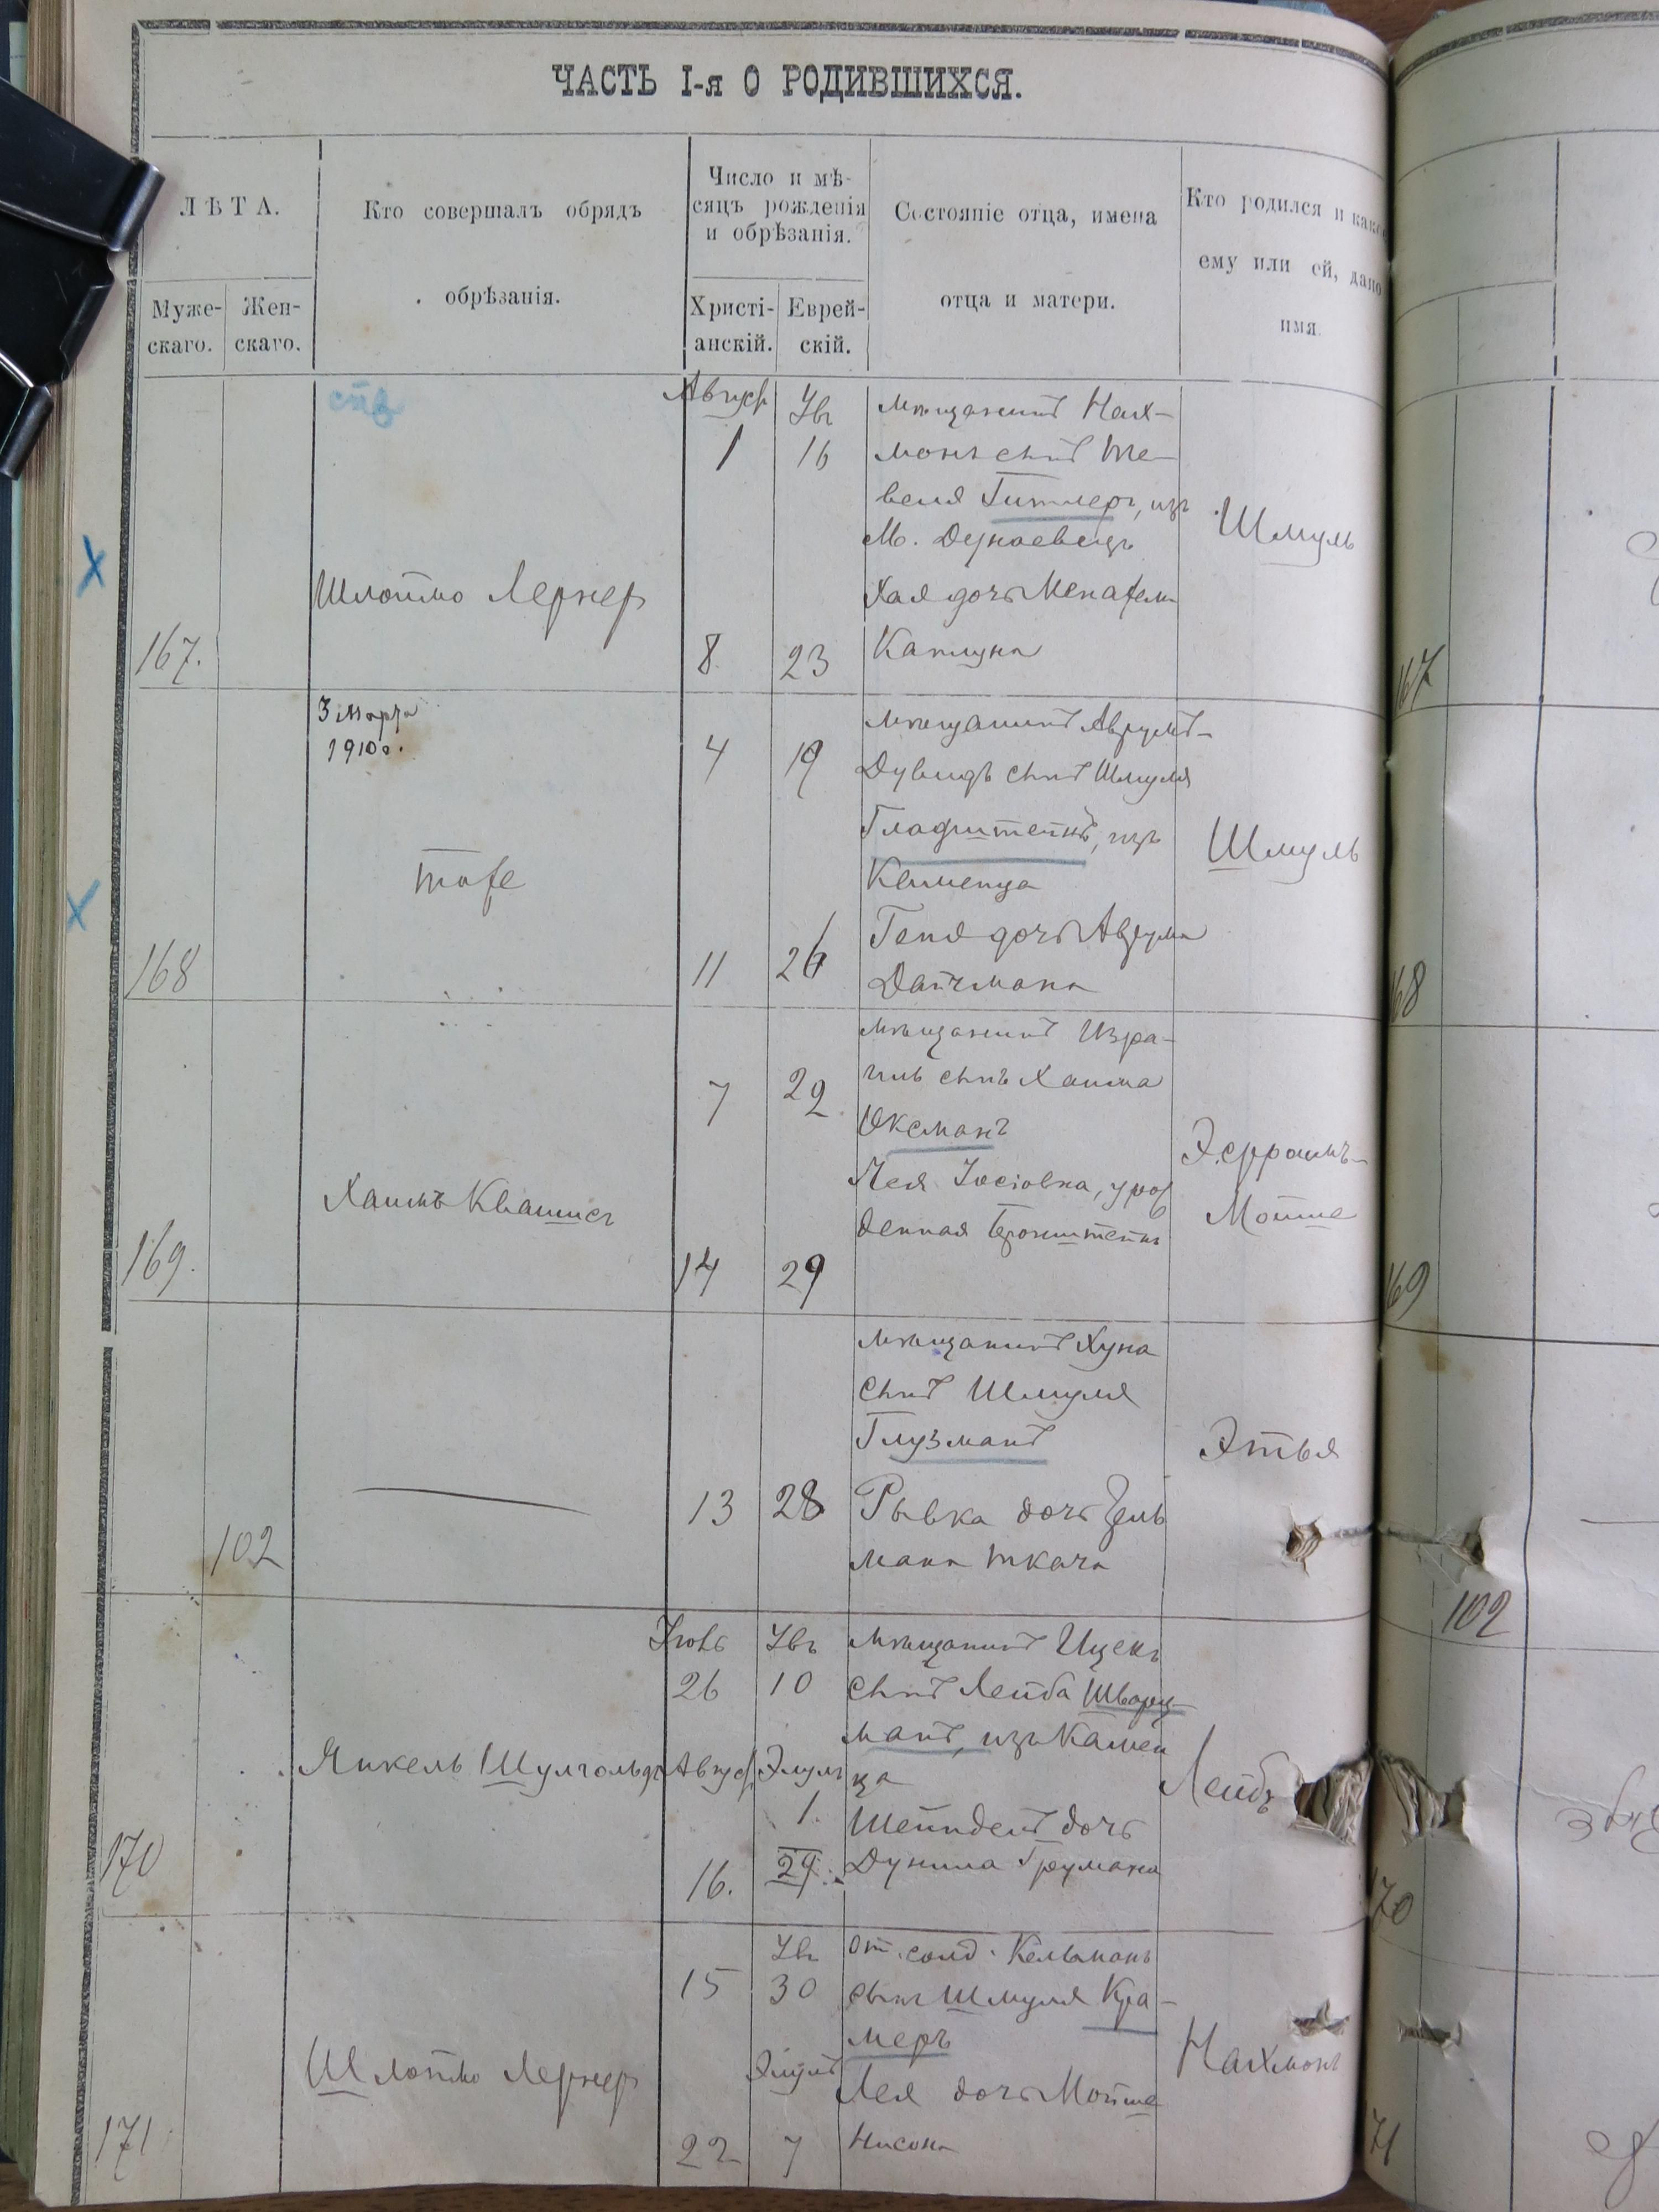 ЧАСТЬ I-я О РОДИВШИХСЯ.
ЛѢТА.
Муже-
скаго.
Жен-
скаго.
Кто совершалъ обрядъ
обрѣзанія.
Число и мѣ-
сяцъ рожденія
и обрѣзанія.
Христі-
анскій.
Еврей-
скій.
Состояніе отца, имена
отца и матери.
Кто родился и какое
ему или ей, дано
имя.
167.
Шлоймо Лернер
Август
1
8
Ув
16
23
мѣщанинъ Нах-
монъ сынъ Те-
веля Гитлеръ, изъ
М. Дунаевецъ
Хая дочь Менахема
Каплуна
Шмуль
167
168
3 Марта
1910 г.
тоже
4
11
19
26
мѣщанинъ Аврумъ-
Дувидъ сынъ Шмуля
Гладштейнъ, изъ
Каменца
Геня дочь Аврума
Дайчмана
Шмуль
168
169.
Хаимъ Квашис
7
14
22
29
мѣщанинъ Изра-
иль сынъ Хаима
Оксманъ
Лея Іосіовна, урож
денная Бронштейнъ
Эфроимъ-
Мойше
169
102
13
28
мѣщанинъ Хуна
сынъ Шмуля
Глузманъ
Рывка дочь Зель
мана Ткача
Этья
102
170
Янкель Шулгольдъ
26
Август
16.
Ув
10
Элулъ
1.
29.
мѣщанинъ Ицекъ
сынъ Лейба Шварц-
манъ, изъ Камен
ца
Шейндель дочь
Грумана
Лейбъ
170
171
Шлоймо Лернер
15
22
Ув
30
Элулъ
7
от. солд. Кельманъ
сынъ Шмуля Кра-
меръ
Лея дочь Мойше
Нисона
Нахмонъ
71